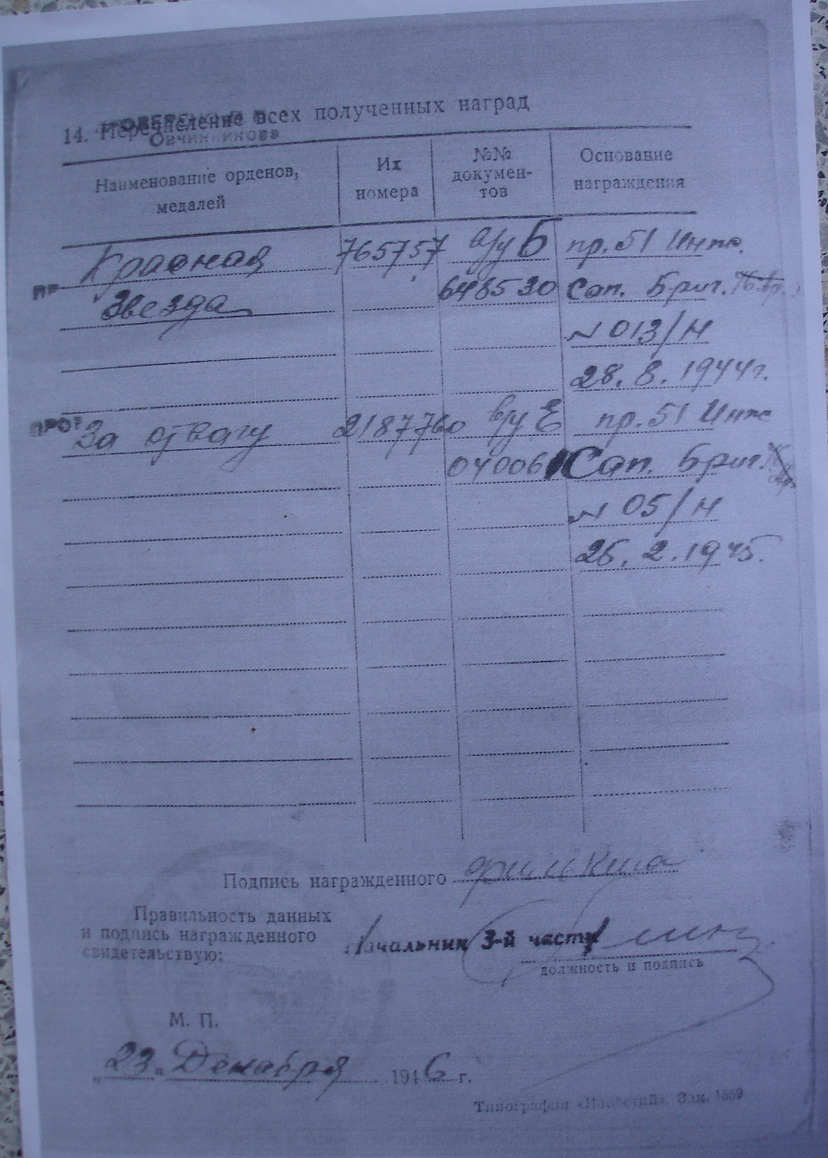 ПРОВЕРЕНО
Овчинникова
14. Перечисление всех полученных наград
Наименование орденов, медалей
Их номера
№№ документов
Основание награждения
Красная 765757 в/у Б пр. 51 Инж.
Звезда 648530 Сап. Бриг.
№ 013/н
28.8.1944г.
За отвагу 2187760 в/у Е пр. 51 Инж
040061 Сап. Бриг
№ 05/н
26.2.1945.
Подпись награжденного
Правильность данных
и подпись награжденного
свидетельствую:
Начальник 3-й части
должность и подпись
М. П.
„23„ Декабря 1946 г.
Типография Зак. 1669